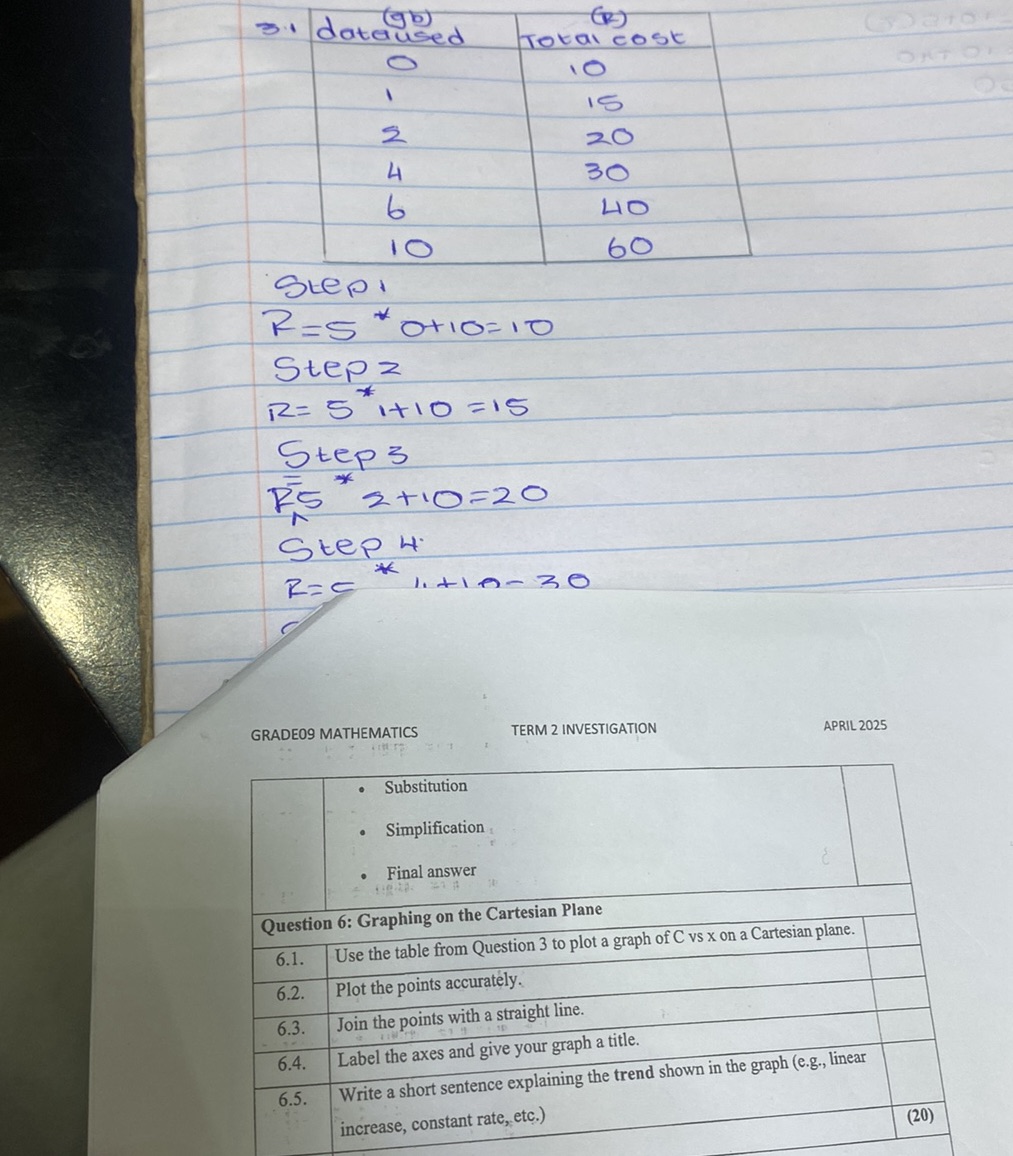 (gb) (R)
3.1 dataused Total cost
0 10
1 15
2 20
4 30
6 40
10 60
Step 1
R=5*0+10=10
Step 2
R=5*1+10=15
Step 3
R=5*2+10=20
Step 4
R=5*4+10=30
GRADE09 MATHEMATICS TERM 2 INVESTIGATION APRIL 2025
• Substitution
• Simplification
• Final answer
Question 6: Graphing on the Cartesian Plane
6.1. Use the table from Question 3 to plot a graph of C vs x on a Cartesian plane.
6.2. Plot the points accurately.
6.3. Join the points with a straight line.
6.4. Label the axes and give your graph a title.
6.5. Write a short sentence explaining the trend shown in the graph (e.g., linear
increase, constant rate, etc.) (20)